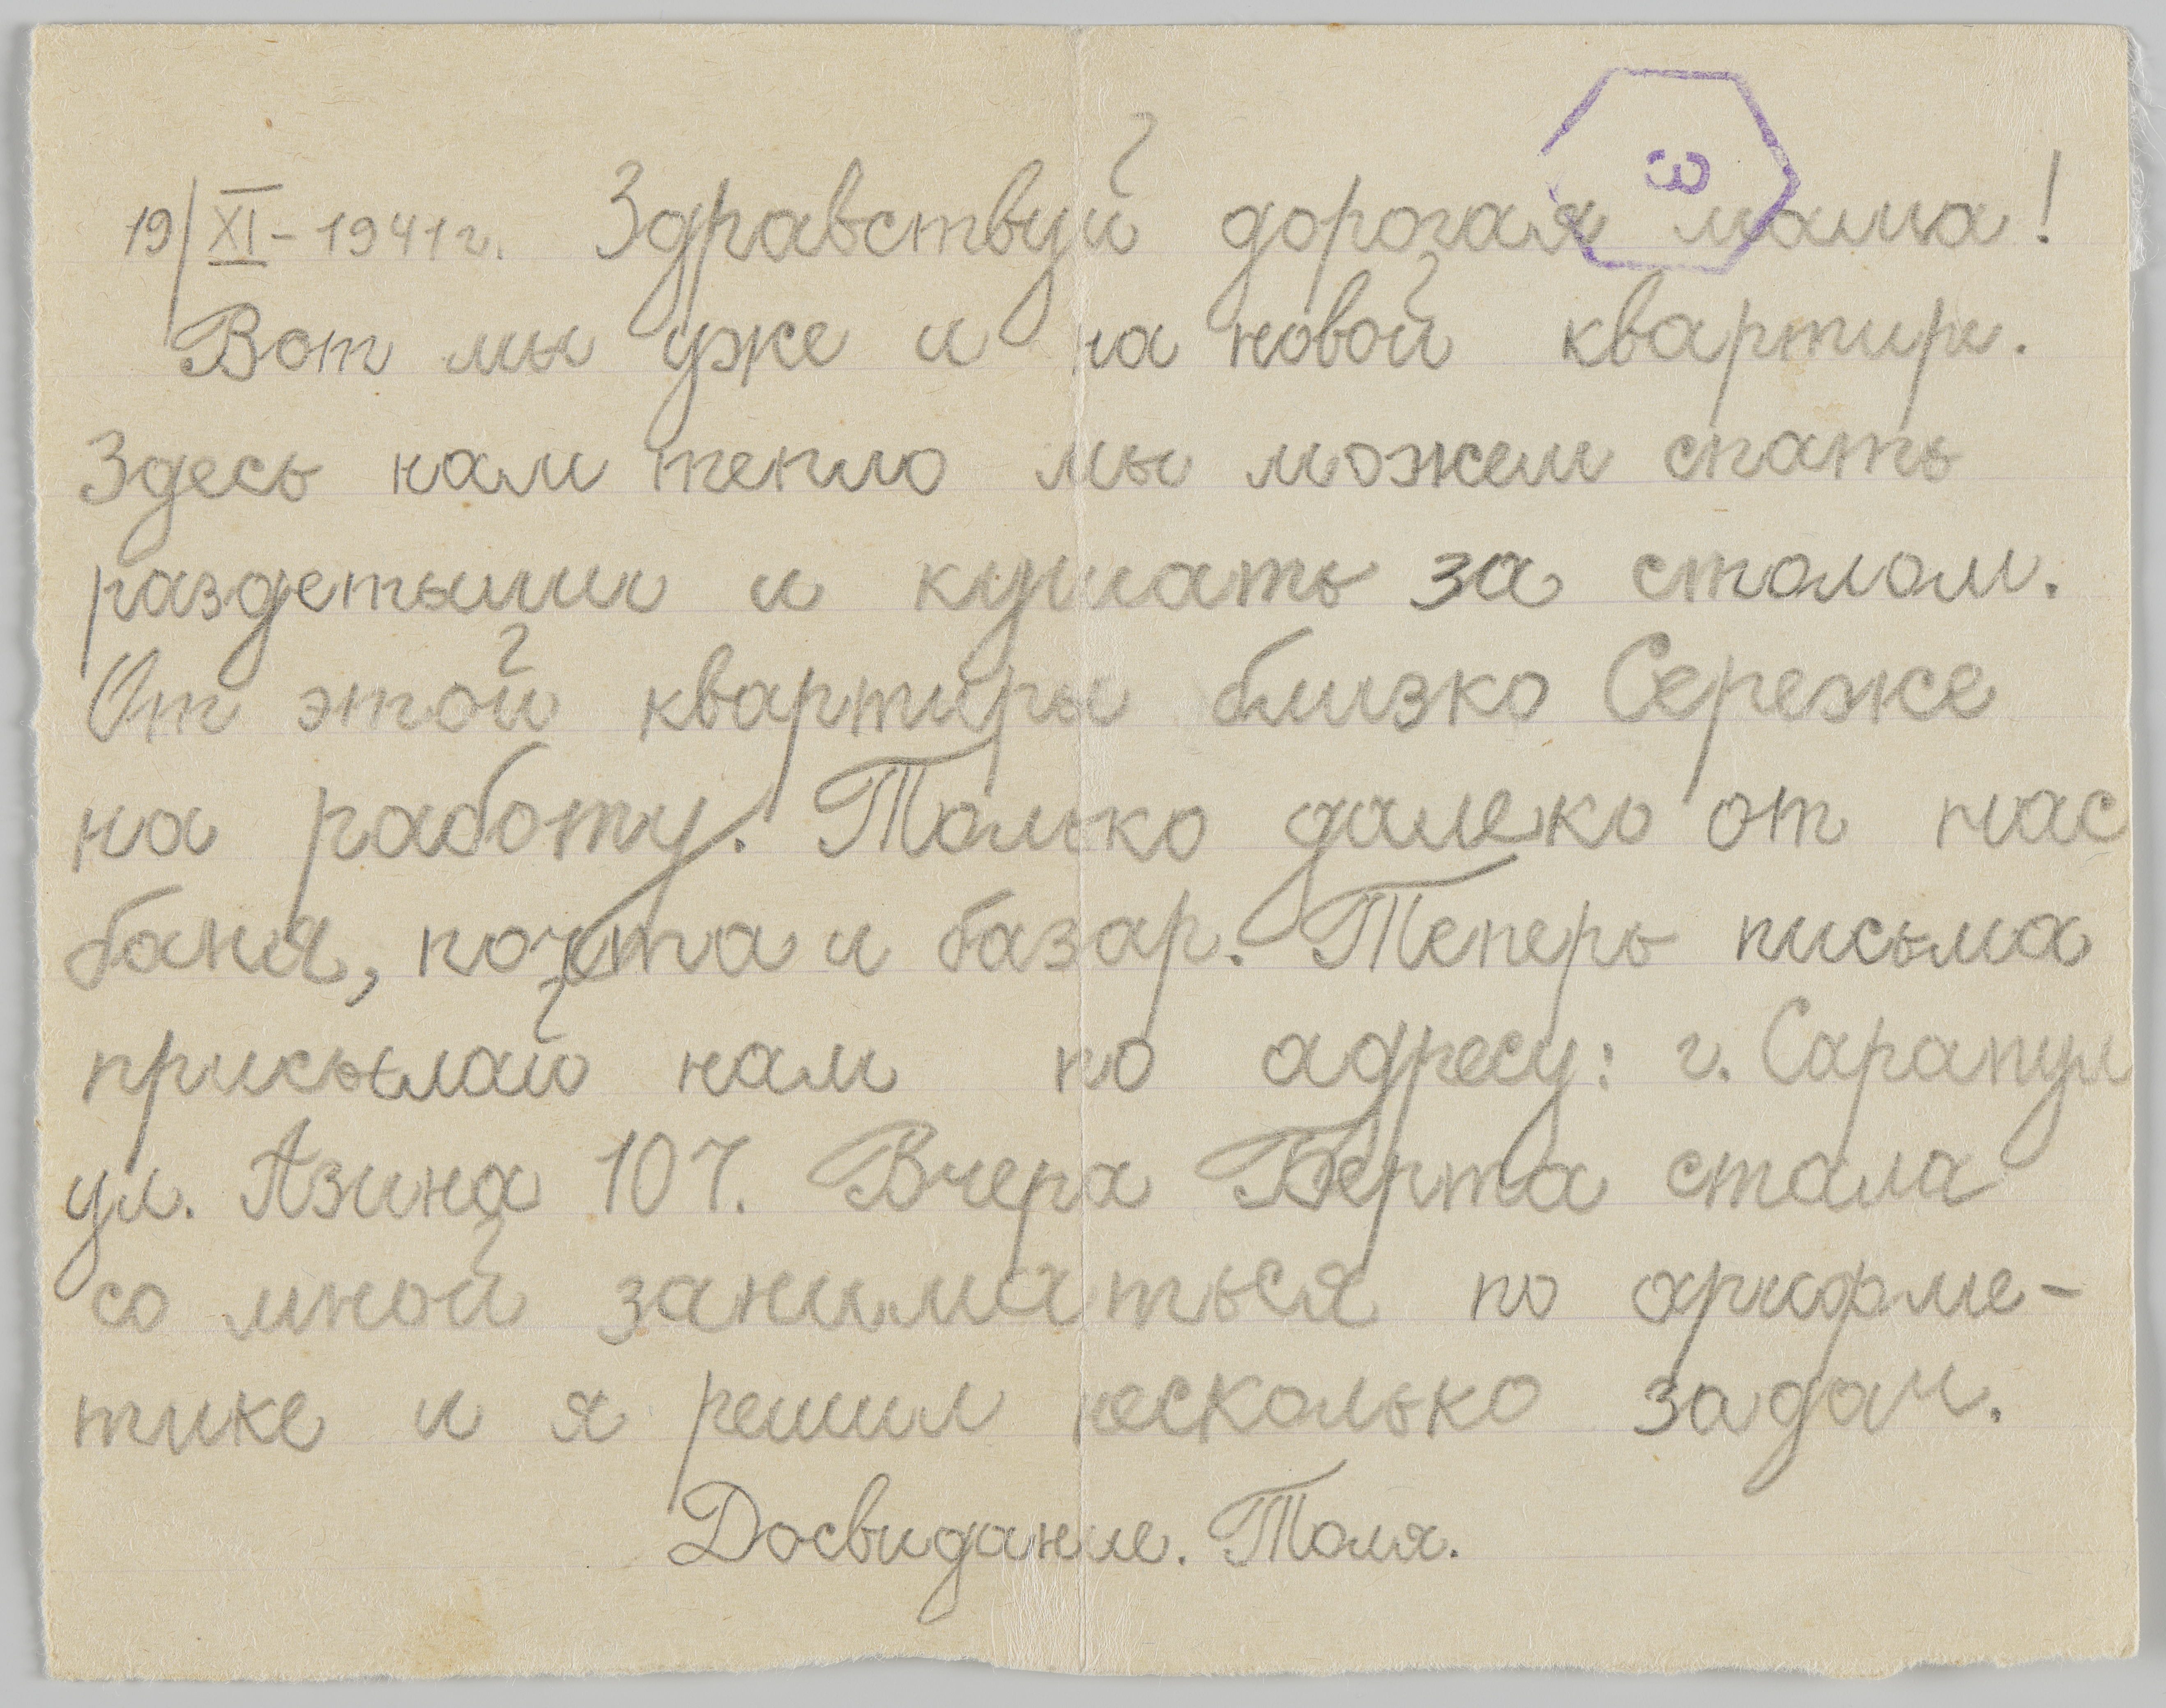 19/XI-1941г. Здравствуй дорогая мама!
3
Вот мы уже и на новой квартире.
Здесь нам тепло мы можем спать
раздетыми и кушать за столом.
От этой квартиры близко Сереже
на работу. Только далеко от нас
баня, почта и базар. Теперь письма
присылай нам по адресу: г. Сарапул
ул. Азина 107. Вчера Берта стала
со мной заниматься по арифме-
тике и я решил несколько задач.
Досвидание. Толя.